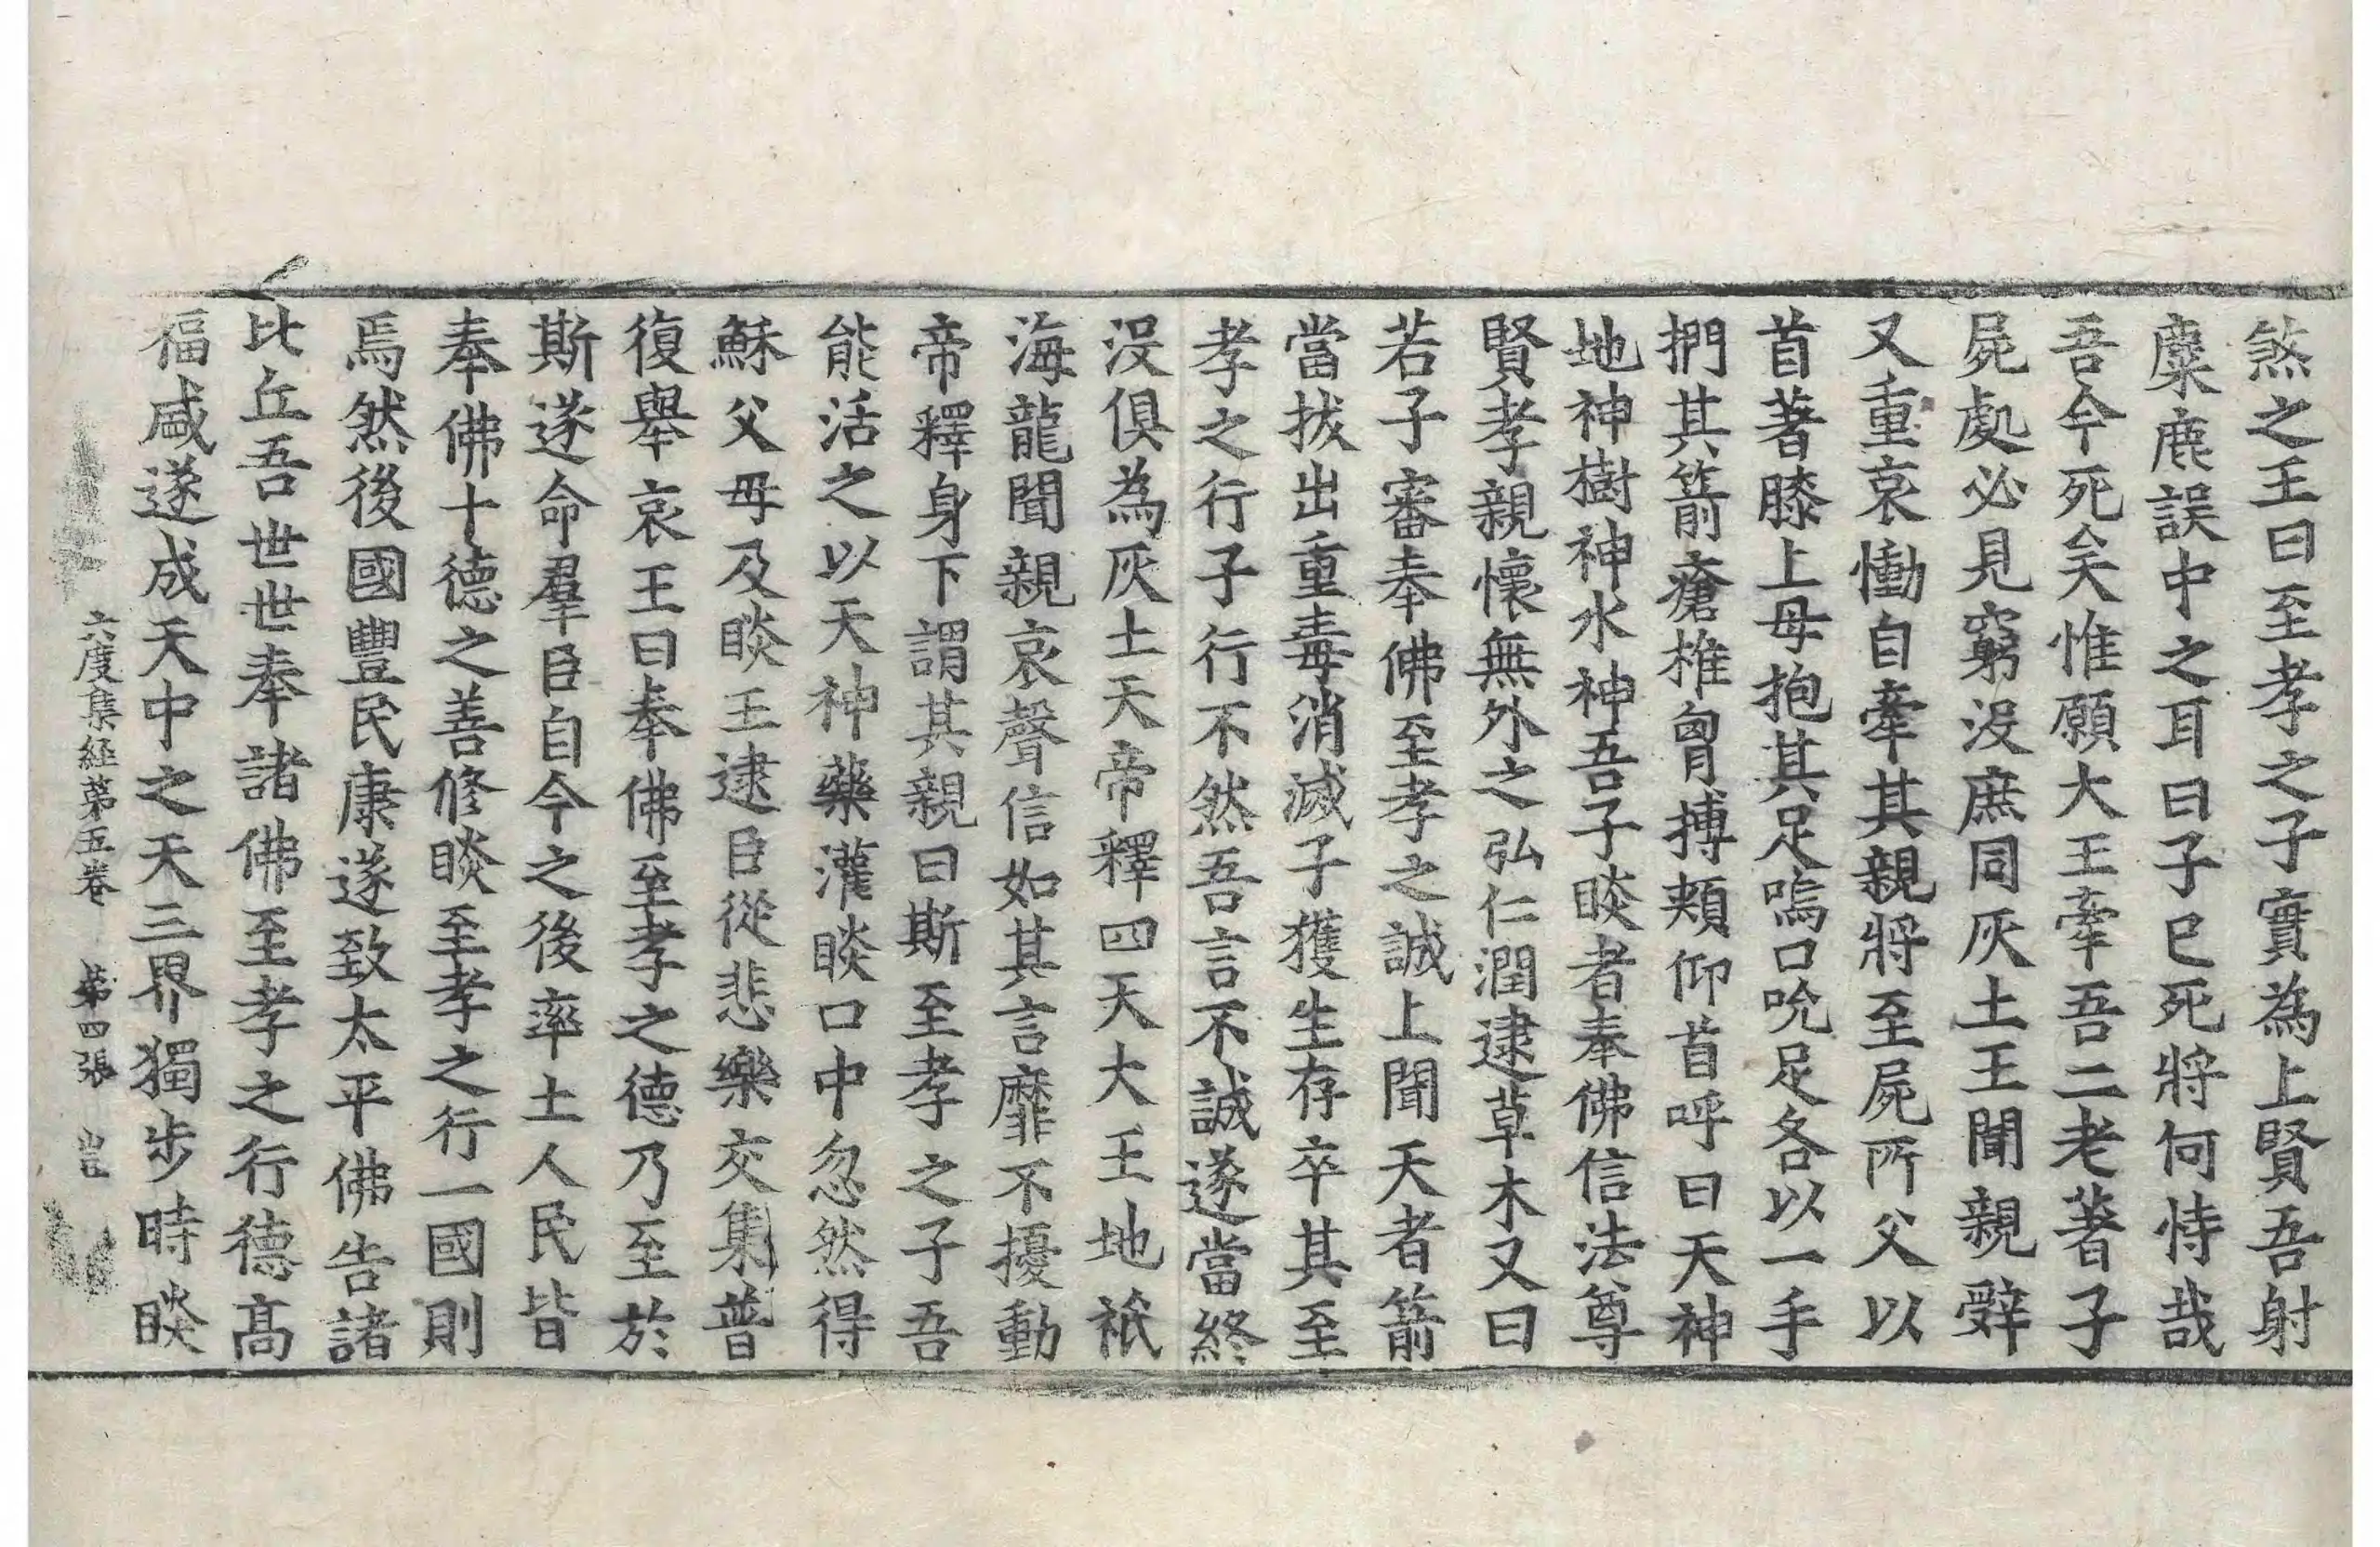 煞之王曰至孝之子實為上賢吾射
麋鹿誤中之耳曰子已死將何恃哉
吾今死矣惟願大王牽吾二老著子
屍處必見窮沒庶同灰土王聞親辤
又重哀慟自牽其親將至屍所父以
首著膝上母抱其足嗚口吮足各以一手
捫其箭瘡椎胷搏頰仰首呼曰天神
地神樹神水神吾子睒者奉佛信法尊
賢孝親懷無外之弘仁潤逮草木又曰
若子審奉佛至孝之誠上聞天者箭
當拔出重毒消滅子獲生存卒其至
孝之行子行不然吾言不誠遂當終
沒俱為灰土天帝釋四天大王地祇
海龍聞親哀聲信如其言靡不擾動
帝釋身下謂其親曰斯至孝之子吾
能活之以天神藥灌睒口中忽然得
穌父母及睒王逮臣從悲樂交集普
復舉哀王曰奉佛至孝之德乃至於
斯遂命羣臣自今之後率土人民皆
奉佛十德之善修睒至孝之行一國則
焉然後國豐民康遂致太平佛告諸
比丘吾世世奉諸佛至孝之行德髙
福咸遂成天中之天三界獨步時睒
六度集経苐五卷 苐四張